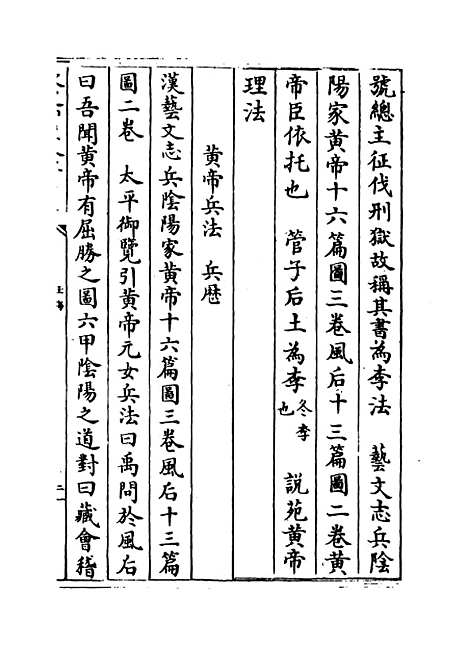 號總主征伐刑獄故稱其書為李法　藝文志兵陰
陽家黄帝十六篇圖三卷風后十三篇圖二卷黄
帝臣依托也　管子后土為李冬李也　說苑黄帝
理法
黄帝兵法　兵歴
漢藝文志兵陰陽家黄帝十六篇圖三卷風后十三篇
圖二卷　太平御覽引黄帝元女兵法曰禹問於風后
曰吾聞黄帝有屈勝之圖六甲陰陽之道對曰藏會稽